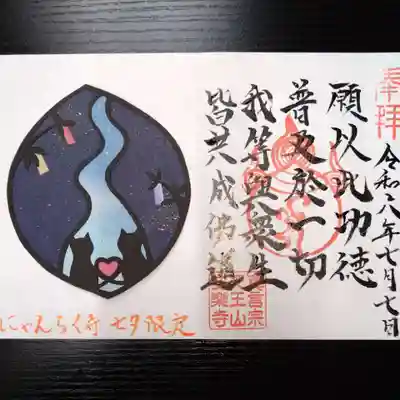 奉拝
令和六年七月七日
願以此功徳
普及於一切
我等與衆生
皆共成佛道
真言宗
王山
楽寺
にゃんらく寺 七夕限定